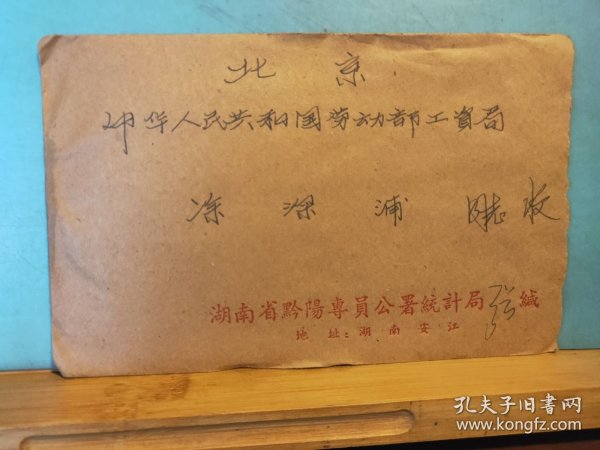 北京
中华人民共和国劳动部工資局
涂深浦 收
湖南省黔陽專員公署統計局張緘
地址：湖南安江
孔夫子旧书网
www.kongfz.com